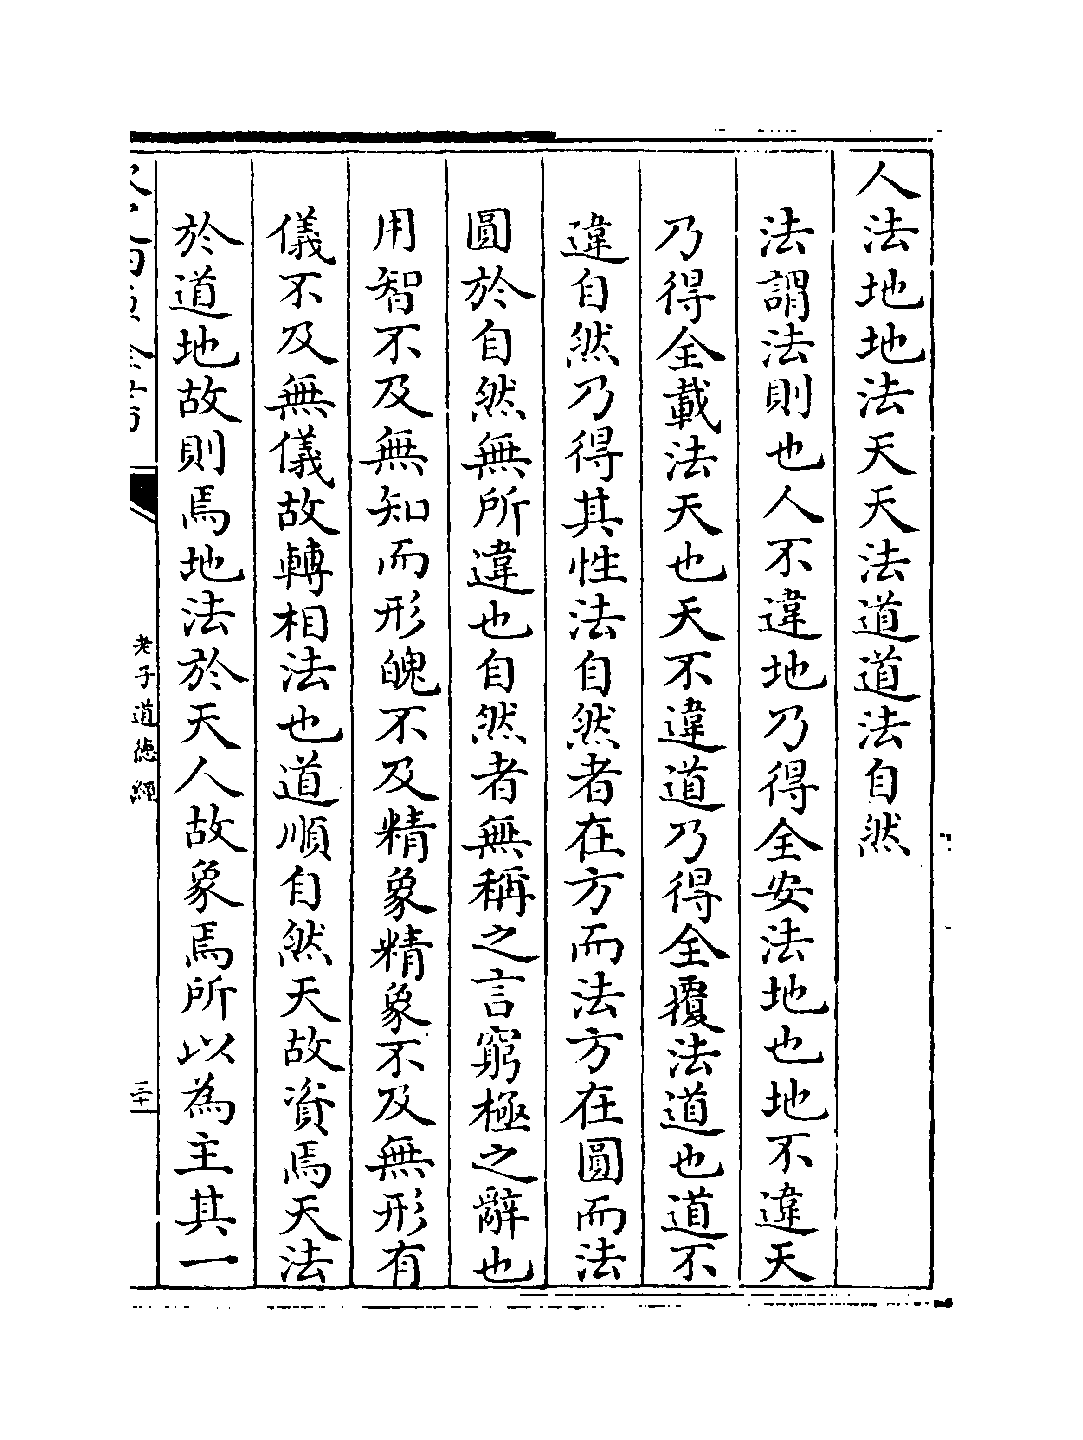 人法地地法天天法道道法自然
法謂法則也人不違地乃得全安法地也地不違天
乃得全載法天也天不違道乃得全覆法道也道不
違自然乃得其性法自然者在方而法方在圓而法
圓於自然無所違也自然者無稱之言窮極之辭也
用智不及無知而形魄不及精象精象不及無形有
儀不及無儀故轉相法也道順自然天故資焉天法
於道地故則焉地法於天人故象焉所以為主其一
老子道德經
二十